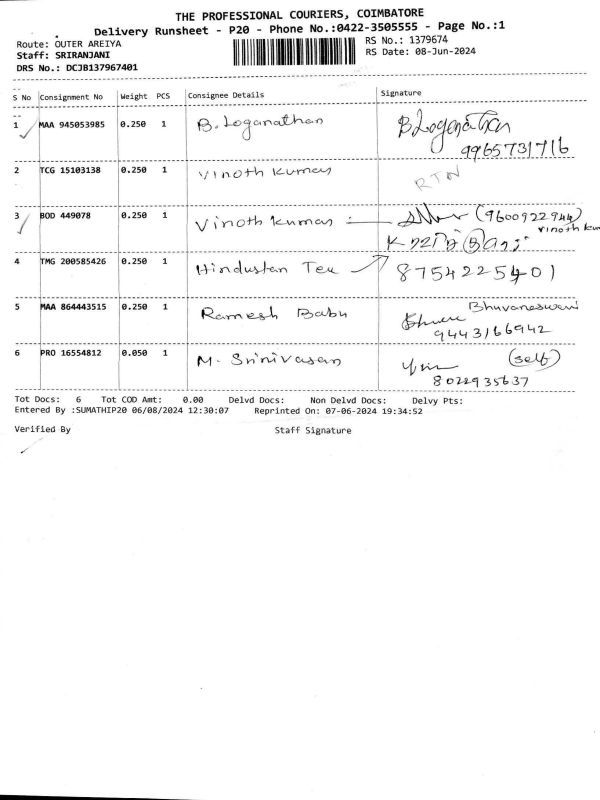 THE PROFESSIONAL COURIERS, COIMBATORE
Delivery Runsheet - P20 - Phone No.:0422-3505555 - Page No.:1
Route: OUTER AREIYA
RS No.: 1379674
Staff: SRIRANJANI
RS Date: 08-Jun-2024
DRS No.: DCJB137967401
S No Consignment No Weight PCS Consignee Details Signature
1 MAA 945053985 0.250 1 B. Loganathan B Loganathan
9965731716
2 TCG 15103138 0.250 1 Vinoth Kumar RTN
3 BOD 449078 0.250 1 Vinoth Kumar (9600922944)
vinoth kum
4 TMG 200585426 0.250 1 Hindustan Tex 8754225401
5 MAA 864443515 0.250 1 Ramesh Babu Bhuvaneswari
9443166942
6 PRO 16554812 0.050 1 M. Srinivasan (self)
8022935637
Tot Docs: 6 Tot COD Amt: 0.00 Delvd Docs: Non Delvd Docs: Delvy Pts:
Entered By :SUMATHIP20 06/08/2024 12:30:07 Reprinted On: 07-06-2024 19:34:52
Verified By Staff Signature